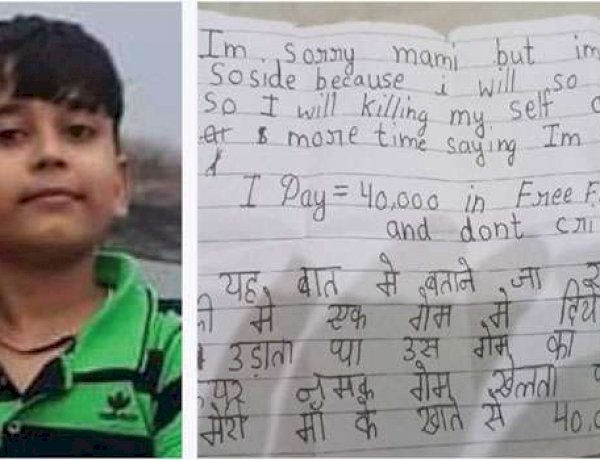 Im sorry mami but im
Soside because i will so
So I will killing my self
more time saying Im
I Pay = 40,000 in Free
and dont cri
यह बात मे बताने जा
मे एक गेम मे
उड़ाता था उस गेम का
नमक गेम खेलता
मेरी माँ के खाते से 40,0